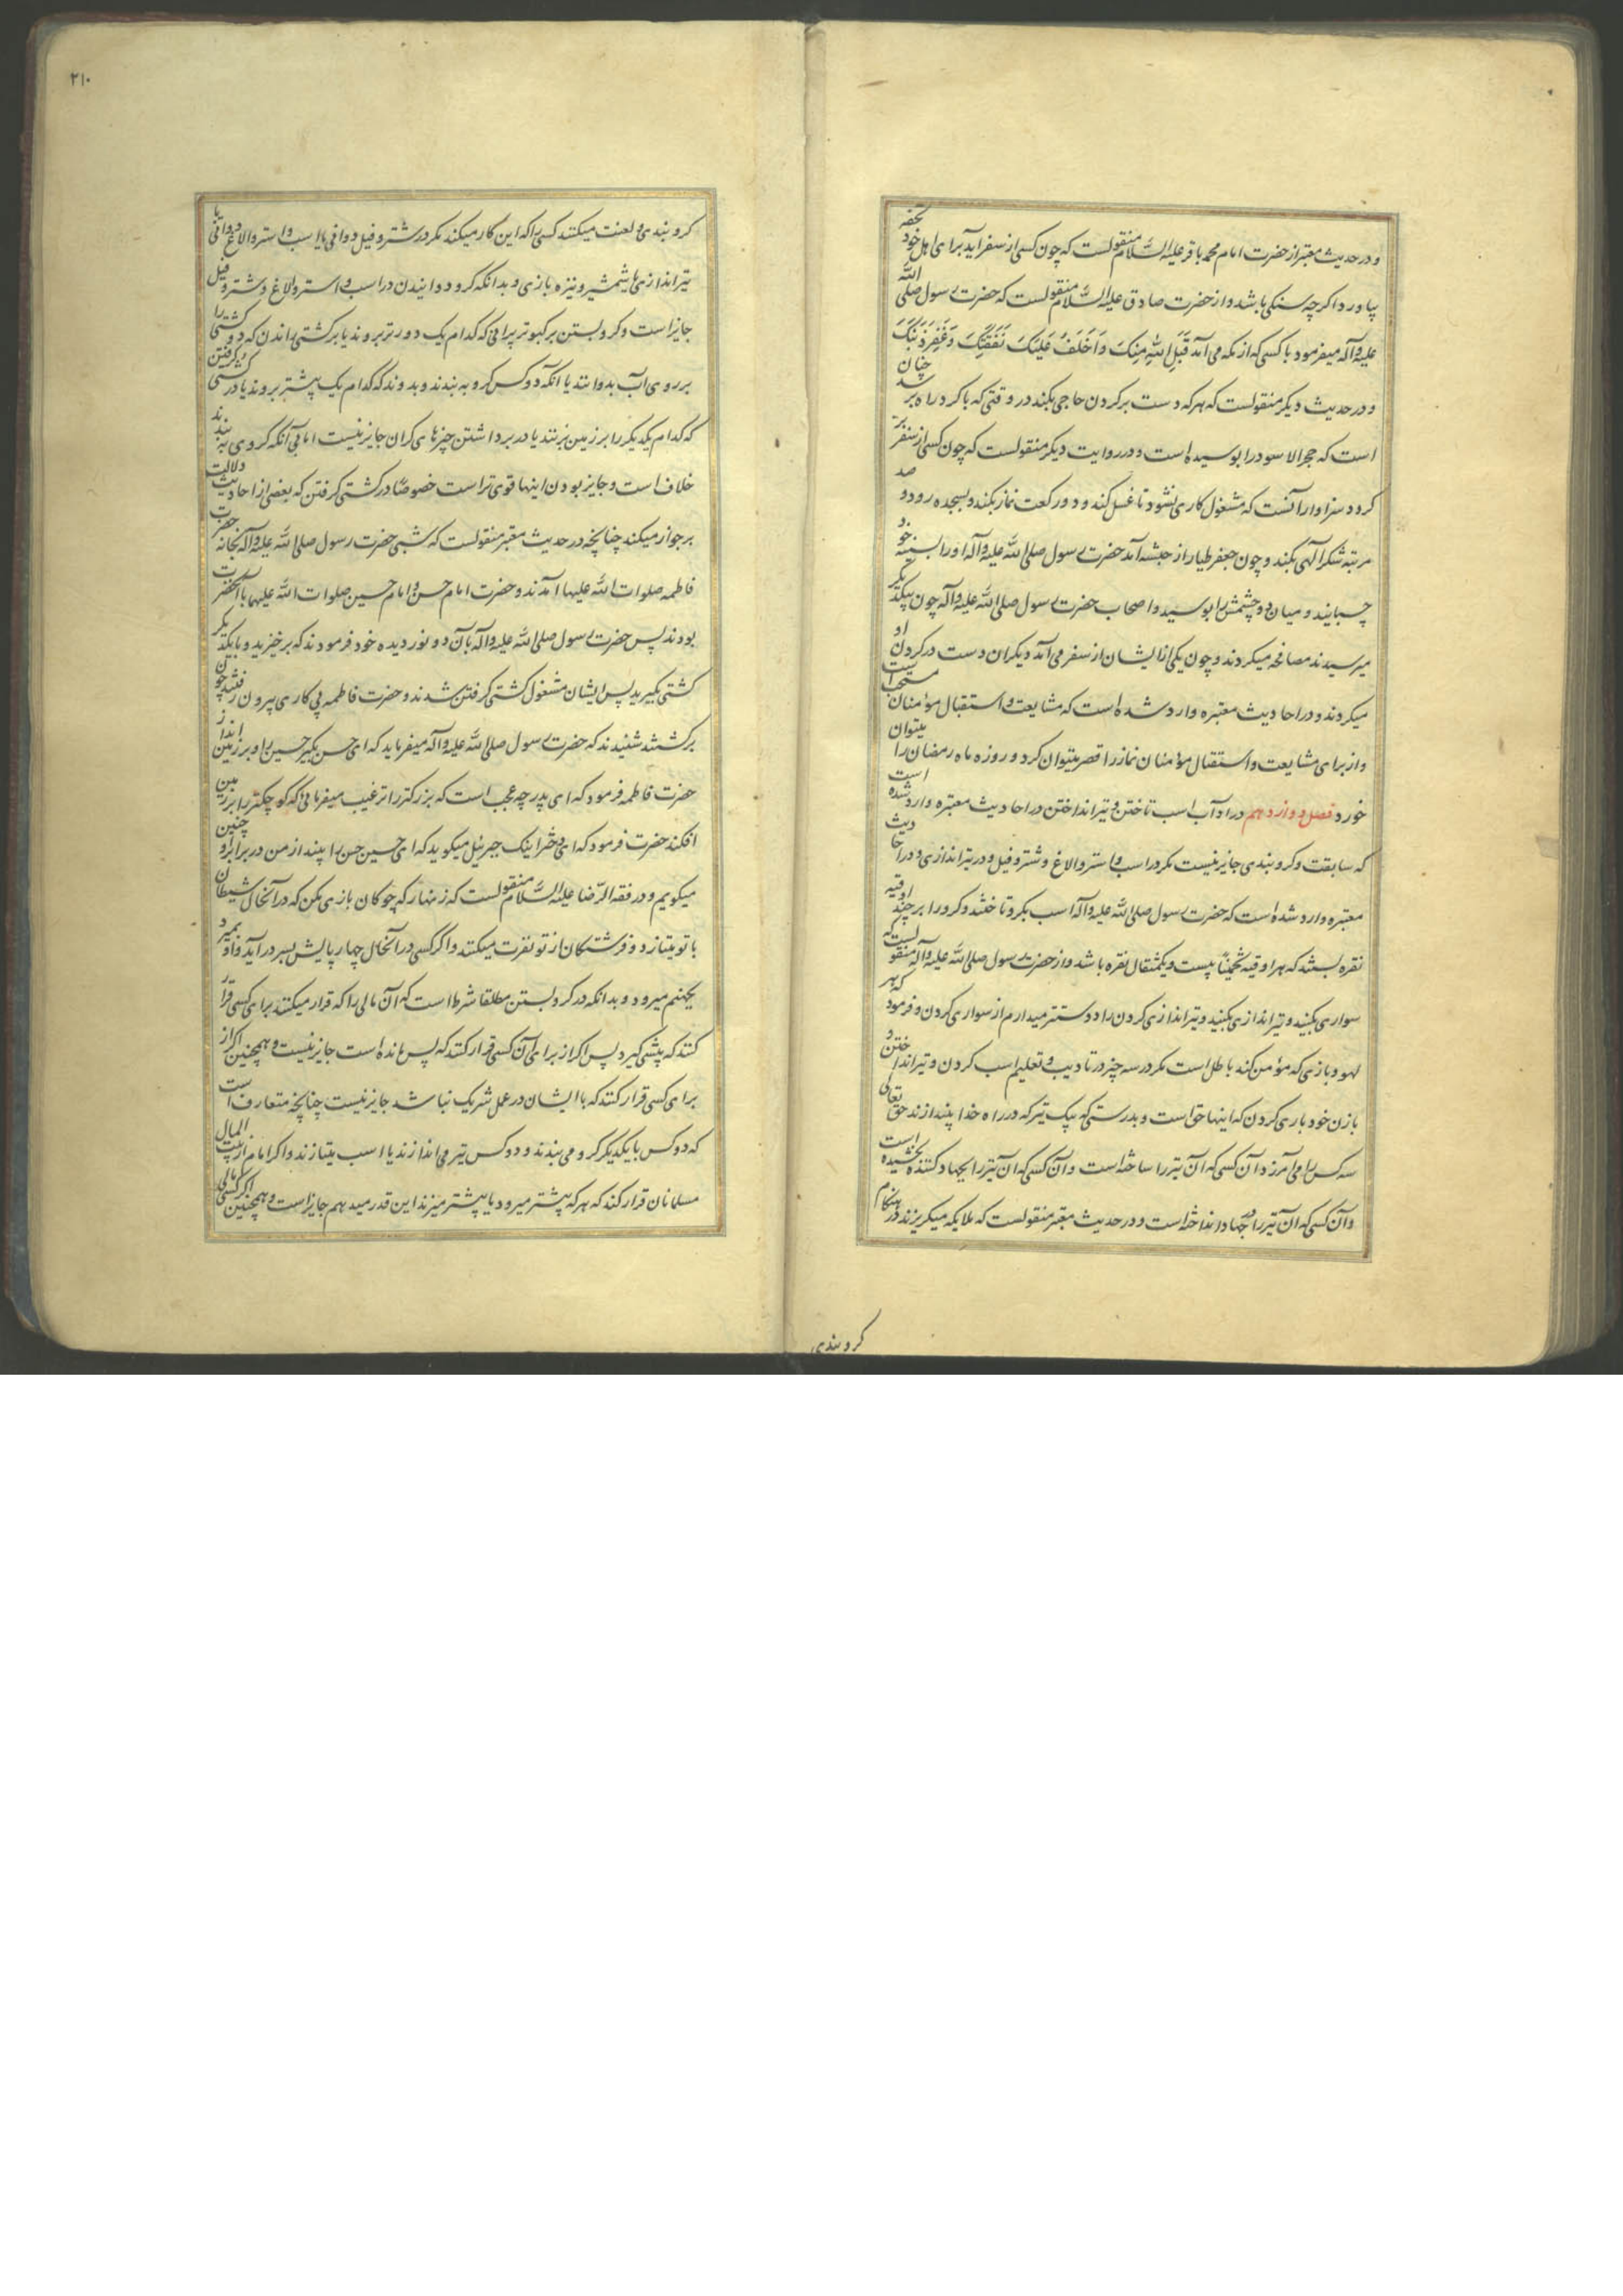 و در حدیث معتبر از حضرت امام محمد باقر علیه السّلام منقولست که چون کسی از سفر آید برای اهل خود تحفه
بیاورد اکرچه سنکی باشد و از حضرت صادق علیه السّلام منقولست که حضرت رسول صلی الله
علیه وآله میفرمود با کسی که از مکه می آمد قَبِلَ اللهُ مِنکَ وَ اَخلَفَ عَلَیکَ نَفَقَتَکَ وَ غَفَرَ ذَنبَکَ
و در حدیث دیکر منقولست که هر که دست بر کردن حاجی بکند در وقتی که با کرد راه برسد چنان
است که حجر الاسود را بوسیده است و در روایت دیکر منقولست که چون کسی از سفر بر
کردد سزاوار آنست که مشغول کاری نشود تا غسل کند و دو رکعت نماز بکند و بسجده رود و صد
مرتبه شکر الهی بکند و چون جعفر طیار از حبشه آمد حضرت رسول صلی الله علیه وآله او را بسینه خود
چسبانید و میان دو چشمش را بوسید و اصحاب حضرت رسول صلی الله علیه وآله چون بیکدیکر
میرسیدند مصافحه میکردند و چون یکی از ایشان از سفر می آمد دیکران دست در کردن او
میکردند و در احادیث معتبره وارد شده است که مشایعت و استقبال مؤمنان مستحب است
و از برای مشایعت و استقبال مؤمنان نماز را قصر میتوان کرد و روزه ماه رمضان را میتوان
خورد فصل دوازدهم در آداب اسب تاختن و تیر انداختن در احادیث معتبره وارد شده است
که سابقت و کروبندی جایز نیست مکر در اسب و استر و الاغ و شتر و فیل و در تیر اندازی و در احادیث
معتبره وارد شده است که حضرت رسول صلی الله علیه وآله اسب بکرو تاختند و کرو را بر چند اوقیه
نقره بستند که هر اوقیه تخمیناً بیست و یکمثقال نقره باشد و از حضرت رسول صلی الله علیه وآله منقولست که
سواری بکنید و تیر اندازی بکنید و تیر اندازی کردن را دوستتر میدارم از سواری کردن و فرمود که هر
لهو و بازی که مؤمن کند باطل است مکر در سه چیز در تادیب و تعلیم اسب کردن و تیر انداختن و
با زن خود بازی کردن که اینها حق است و بدرستی که بیک تیر که در راه خدا بیندازند حق تعالی
سه کس را می آمرزد آن کسی که آن تیر را ساخته است و آن کسی که آن تیر را بجهاد کننده بخشیده است
و آن کسی که آن تیر را در جهاد انداخته است و در حدیث معتبر منقولست که ملایکه میکریزند در هنکام
کروبندی
۲۱۰
کروبندی و لعنت میکنند کسی را که این کار میکند مکر در شتر و فیل دوانی یا اسب و استر و الاغ دوانی یا
تیر اندازی یا شمشیر و نیزه بازی و بدانکه کرو دوانیدن در اسب و استر و الاغ و شتر و فیل
جایز است و کرو بستن بر کبوتر پرانی که کدام یک دورتر بروند یا بر کشتی راندن که دو کشتی را
بر روی آب بدوانند یا آنکه دو کس کرو به بندند و بدوند که کدام یک پیشتر بروند یا در کشتی کرفتن
که کدام یکدیکر را بر زمین بزنند یا در برداشتن چیزهای کران جایز نیست اما بی آنکه کروی به بندند
خلاف است و جایز بودن اینها قوی تر است خصوصًا در کشتی کرفتن که بعضی از احادیث دلالت
بر جواز میکند چنانچه در حدیث معتبر منقولست که شبی حضرت رسول صلی الله علیه وآله بخانه حضرت
فاطمه صلوات الله علیها آمدند و حضرت امام حسن و امام حسین صلوات الله علیهما با آنحضرت
بودند پس حضرت رسول صلی الله علیه وآله بآن دو نور دیده خود فرمودند که برخیزید و با یکدیکر
کشتی بکیرید پس ایشان مشغول کشتی کرفتن شدند و حضرت فاطمه پی کاری بیرون رفتند چون
برکشتند شنیدند که حضرت رسول صلی الله علیه وآله میفرماید که ای حسن بکیر حسین را و بر زمین انداز
حضرت فاطمه فرمود که ای پدر چه عجب است که بزرکتر را ترغیب میفرمائی که کوچکتر را بر زمین
افکند حضرت فرمود که ای دختر اینک جبرئیل میکوید که ای حسین حسن را بیند از من در برابر او چنین
میکویم و در فقه الرّضا علیه السّلام منقولست که زنهار که چوکان بازی مکن که در آنحال شیطان
با تو میتازد و فرشتکان از تو نفرت میکنند و اکر کسی در آنحال چهار پایش بسر در آید و او بمیرد
بجهنم میرود و بدانکه در کرو بستن مطلقا شرط است که آن مالی را که قرار میکنند برای کسی قرار
کنند که پیشی کیرد پس اکر از برای آن کسی قرار کنند که پس مانده است جایز نیست و همچنین اکر از
برای کسی قرار کنند که با ایشان در عمل شریک نباشد جایز نیست چنانچه متعارف است
که دو کس با یکدیکر کرو می بندند و دو کس تیر می اندازند یا اسب میتازند و اکر امام از بیت المال
مسلمانان قرار کند که هر که پیشتر میرود یا پیشتر میزند این قدر میدهم جایز است و همچنین اکر کسی مالی